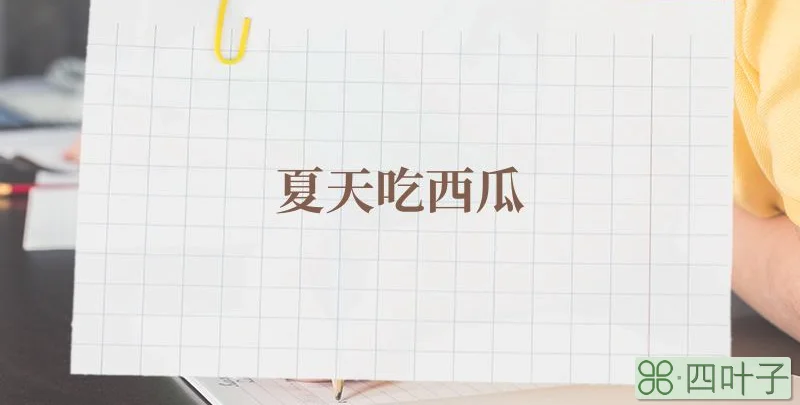 夏天吃西瓜
⌘·四叶子